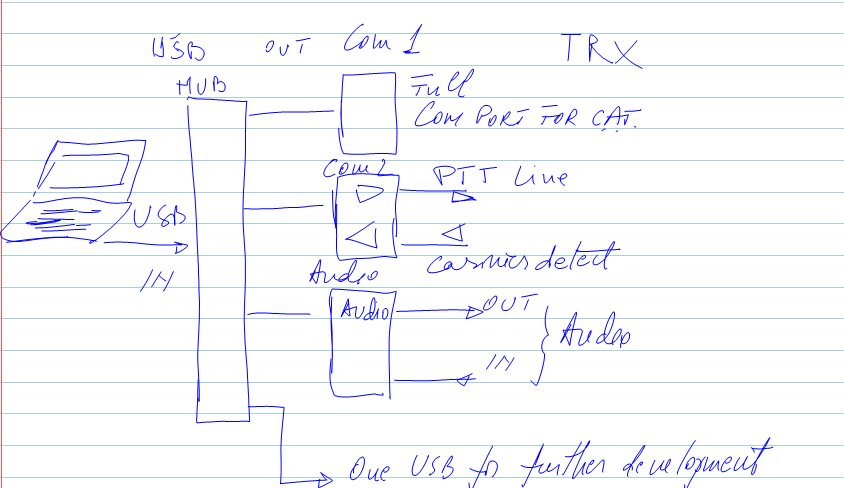 USB OUT Com 1 TRX
HUB
Full
Com PORT FOR CAT.
Com 2 PTT Line
USB
IN
Carrier detect
Audio
AUDIO OUT
Audio
IN
One USB for further development